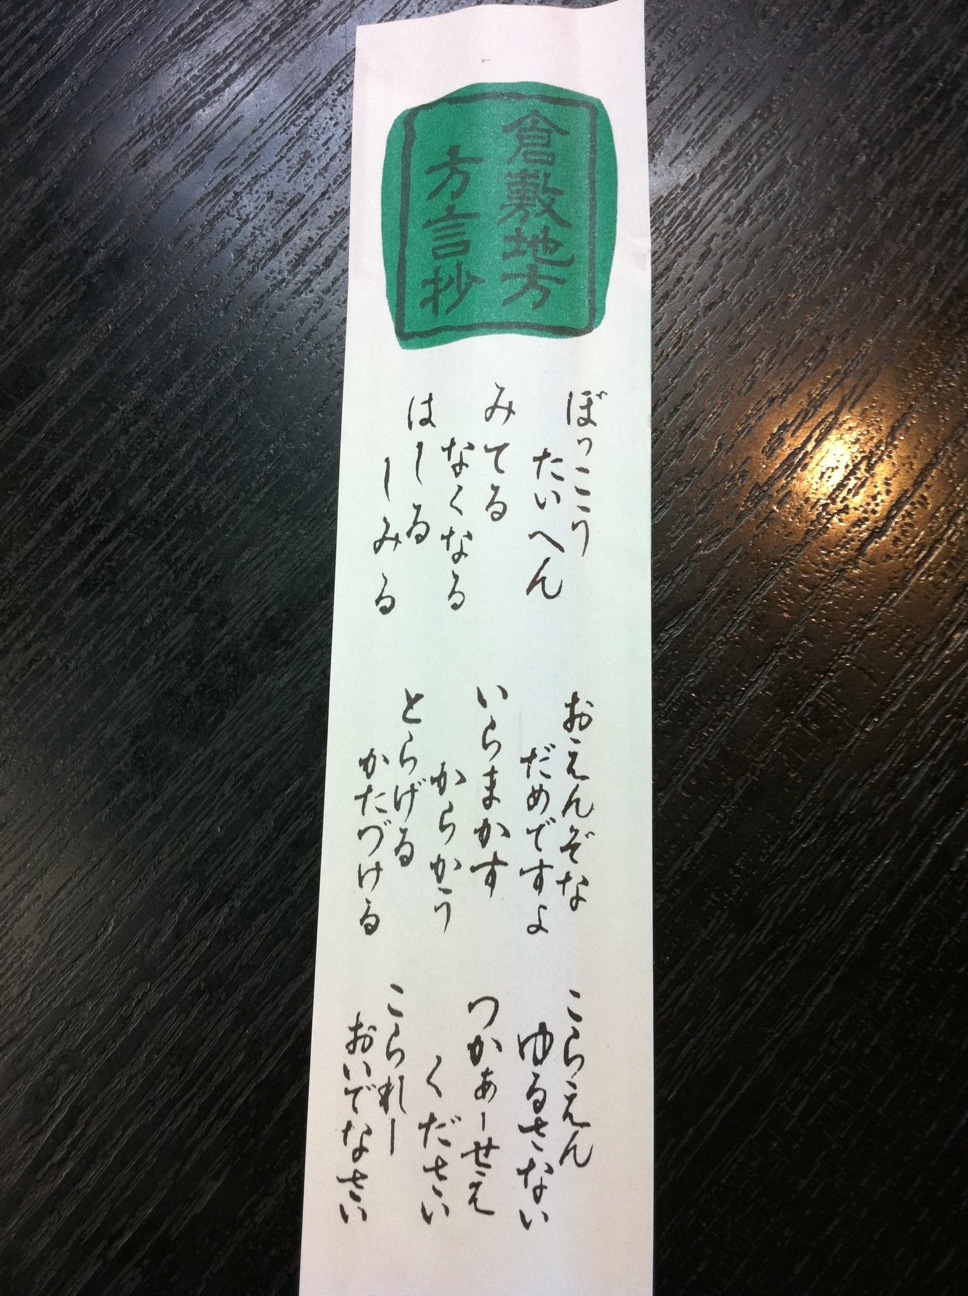 倉敷地方
方言抄
ぼっこう
たいへん
みてる
なくなる
はしーる
しーみる
おえんぞな
だめですよ
いらまかす
からかう
とらげる
かたづける
こらえん
ゆるさない
つかぁーせえ
ください
こられー
おいでなさい